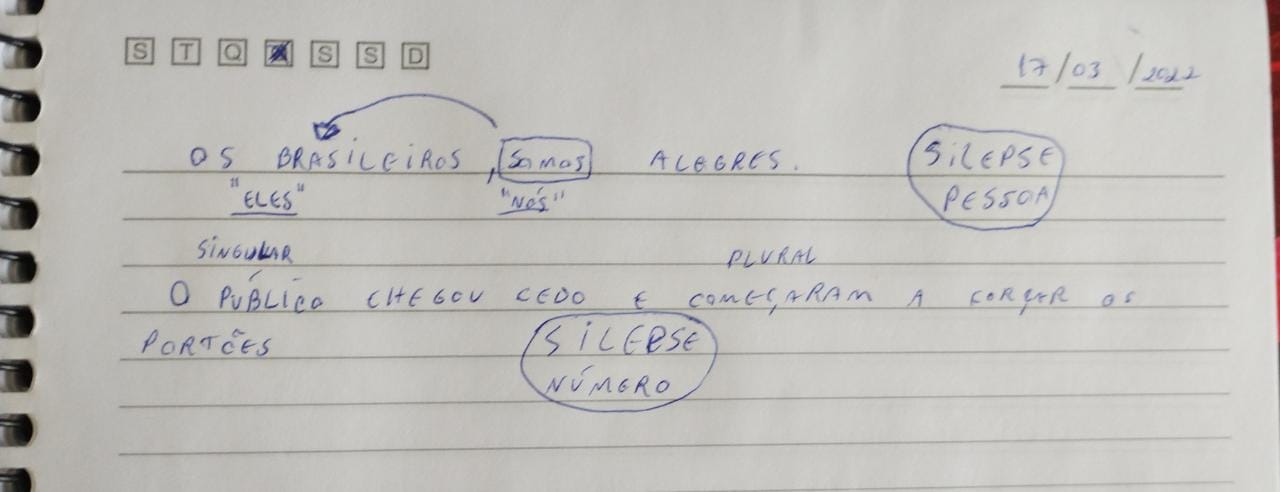 S T Q S S D
17/03/2022
OS BRASILEIROS, SOMOS ALEGRES. SILEPSE
"ELES" "NÓS" PESSOA
SINGULAR PLURAL
O PÚBLICO CHEGOU CEDO E COMEÇARAM A FORÇAR OS
PORTÕES SILEPSE
NÚMERO